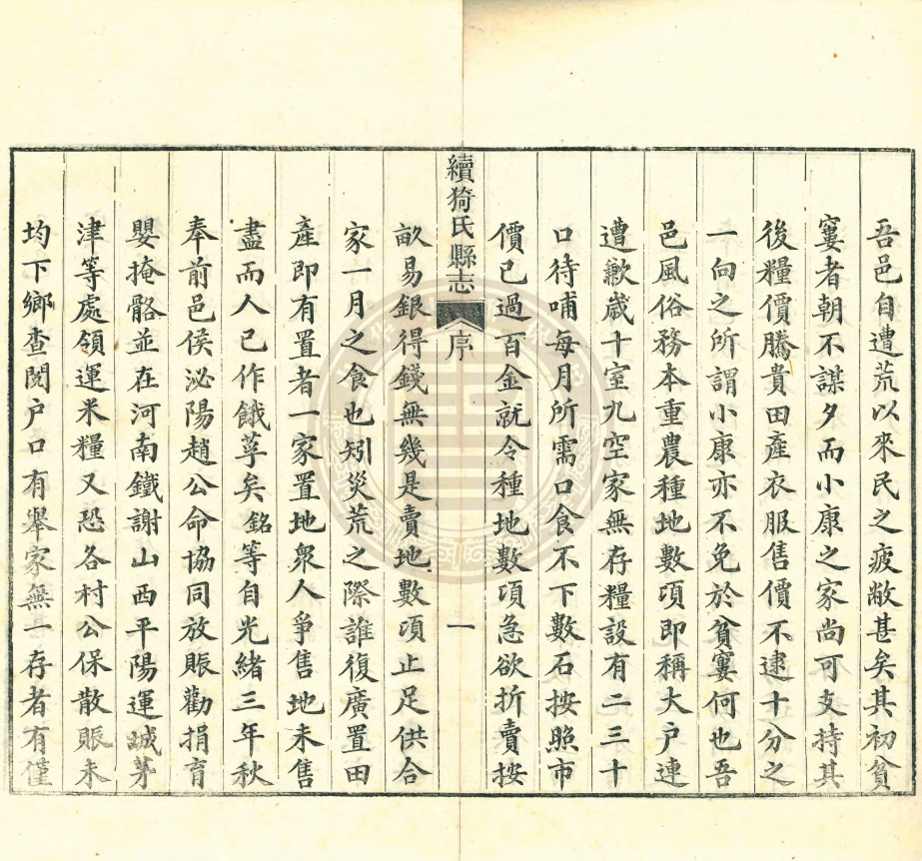 吾邑自遭荒以來民之疲敝甚矣其初貧
窶者朝不謀夕而小康之家尚可支持其
後糧價騰貴田產衣服售價不逮十分之
一向之所謂小康亦不免於貧窶何也吾
邑風俗務本重農種地數項即稱大户連
遭歉歲十室九空家無存糧設有二三十
口待哺每月所需口食不下數石按照市
價已過百金就令種地數項急欲折賣按
續猗氏縣志 序 一
畝易銀得錢無幾是賣地數項止足供合
家一月之食也矧災荒之際誰復廣置田
產即有置者一家置地眾人爭售地未售
盡而人已作餓莩矣銘等自光緒三年秋
奉前邑侯泌陽趙公命協同放賑勸捐育
嬰掩骼並在河南鐵謝山西平陽運城茅
津等處領運米糧又恐各村公保散賬未
均下鄉查閱户口有舉家無一存者有僅